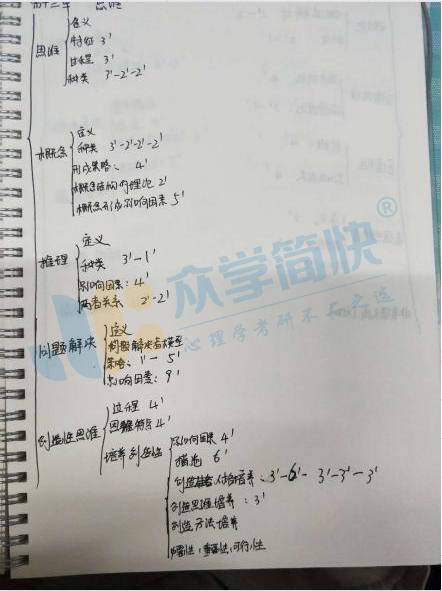 思维
思维
含义
特征 3'
过程 3'
种类 3'-2'-2'
概念
定义
种类 3'-2'-2'-2'
形成策略: 4'
概念结构的理论 2'
概念形成影响因素 5'
推理
定义
种类 3'-1'
影响因素: 4'
两者关系 2'-2'
问题解决
定义
问题解决者模型
策略: 1'- 5'
影响因素: 9'
创造性思维
过程 4'
思维特点 4'
培养创造性
影响因素 4'
措施 6'
培养: 3'-6'- 3'-3'-3'
创造思维培养: 3'
创造方法培养
众学简快®
心理学考研不走